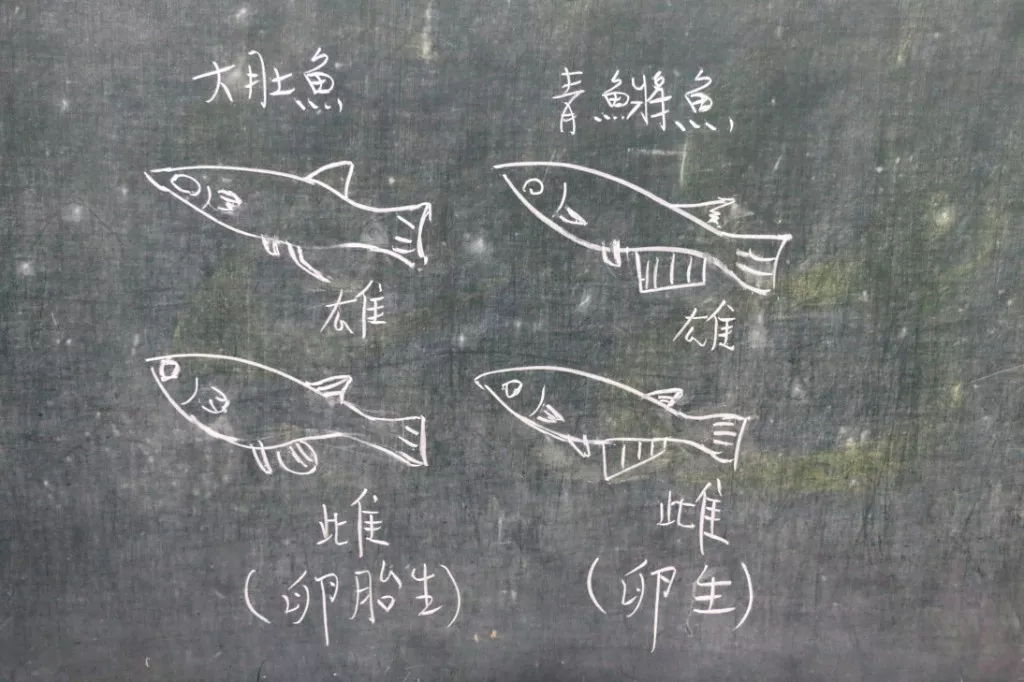 大肚魚
雄
雌
(卵胎生)
青鱂魚
雄
雌
(卵生)